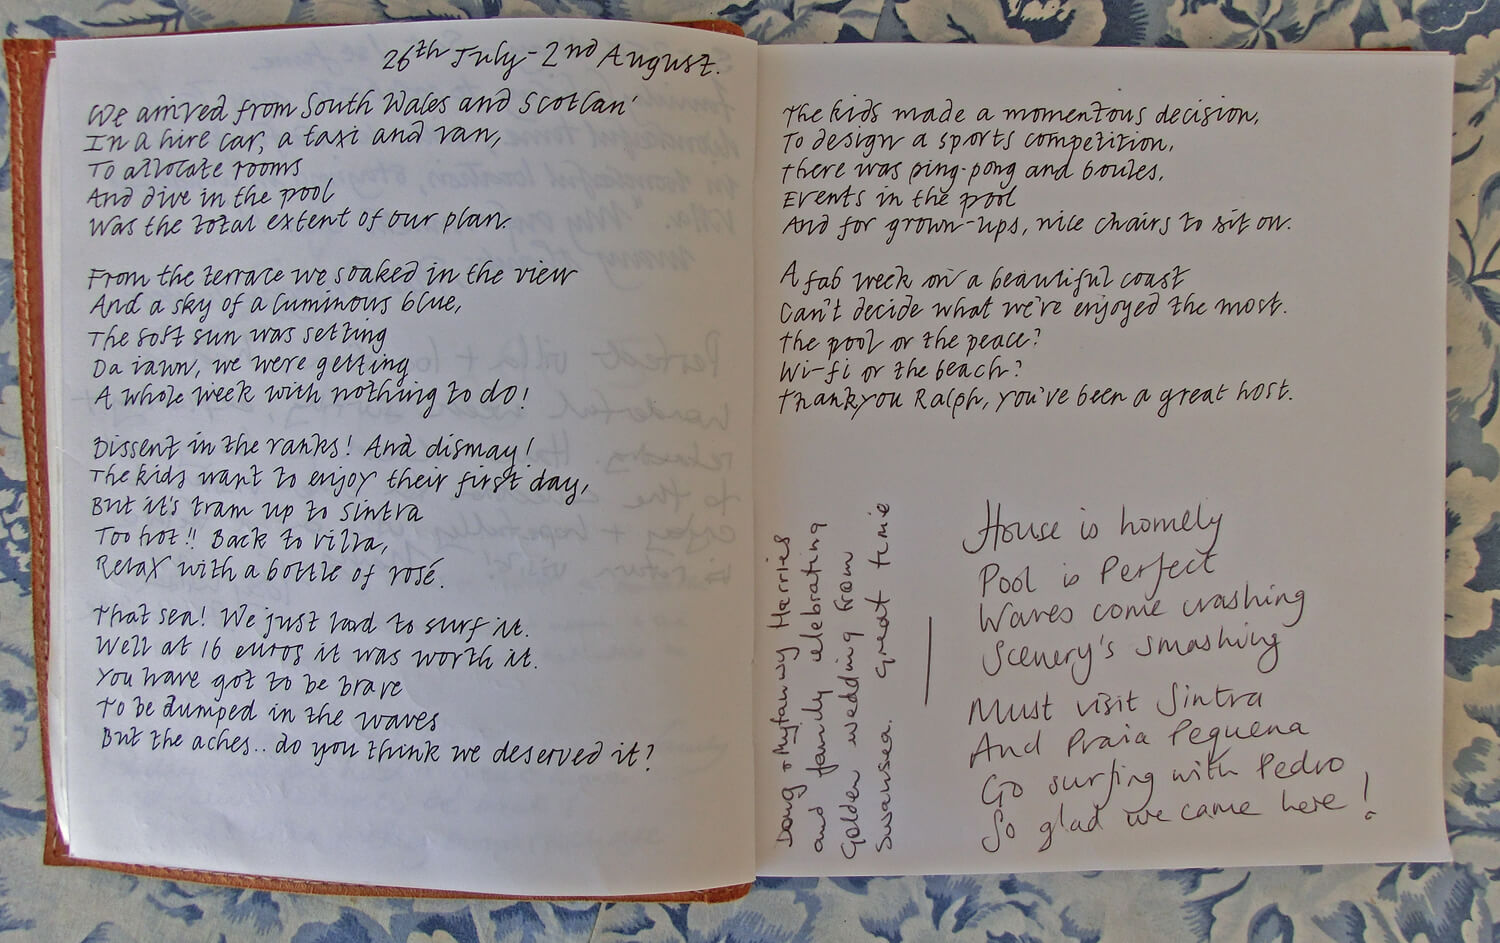 26th July - 2nd August.
We arrived from South Wales and Scotlan'
In a hire car, a taxi and van,
To allocate rooms
And dive in the pool
Was the total extent of our plan.
From the terrace we soaked in the view
And a sky of a luminous blue,
The soft sun was setting
Da iawn, we were getting
A whole week with nothing to do!
Dissent in the ranks! And dismay!
The kids want to enjoy their first day,
But it's tram up to Sintra
Too hot!! Back to villa,
Relax with a bottle of rosé.
That sea! We just had to surf it.
Well at 16 euros it was worth it.
You have got to be brave
To be dumped in the waves
But the aches.. do you think we deserved it?
The kids made a momentous decision,
To design a sports competition,
There was ping-pong and boules,
Events in the pool
And for grown-ups, nice chairs to sit on.
A fab week on a beautiful coast
Can't decide what we've enjoyed the most.
The pool or the peace?
Wi-fi or the beach?
Thankyou Ralph, you've been a great host.
Doug + Myfanwy Herries
and family celebrating
Golden wedding from
Swansea. Great time
House is homely
Pool is Perfect
Waves come crashing
Scenery's smashing
Must visit Sintra
And Praia Pequena
Go surfing with Pedro
So glad we came here!